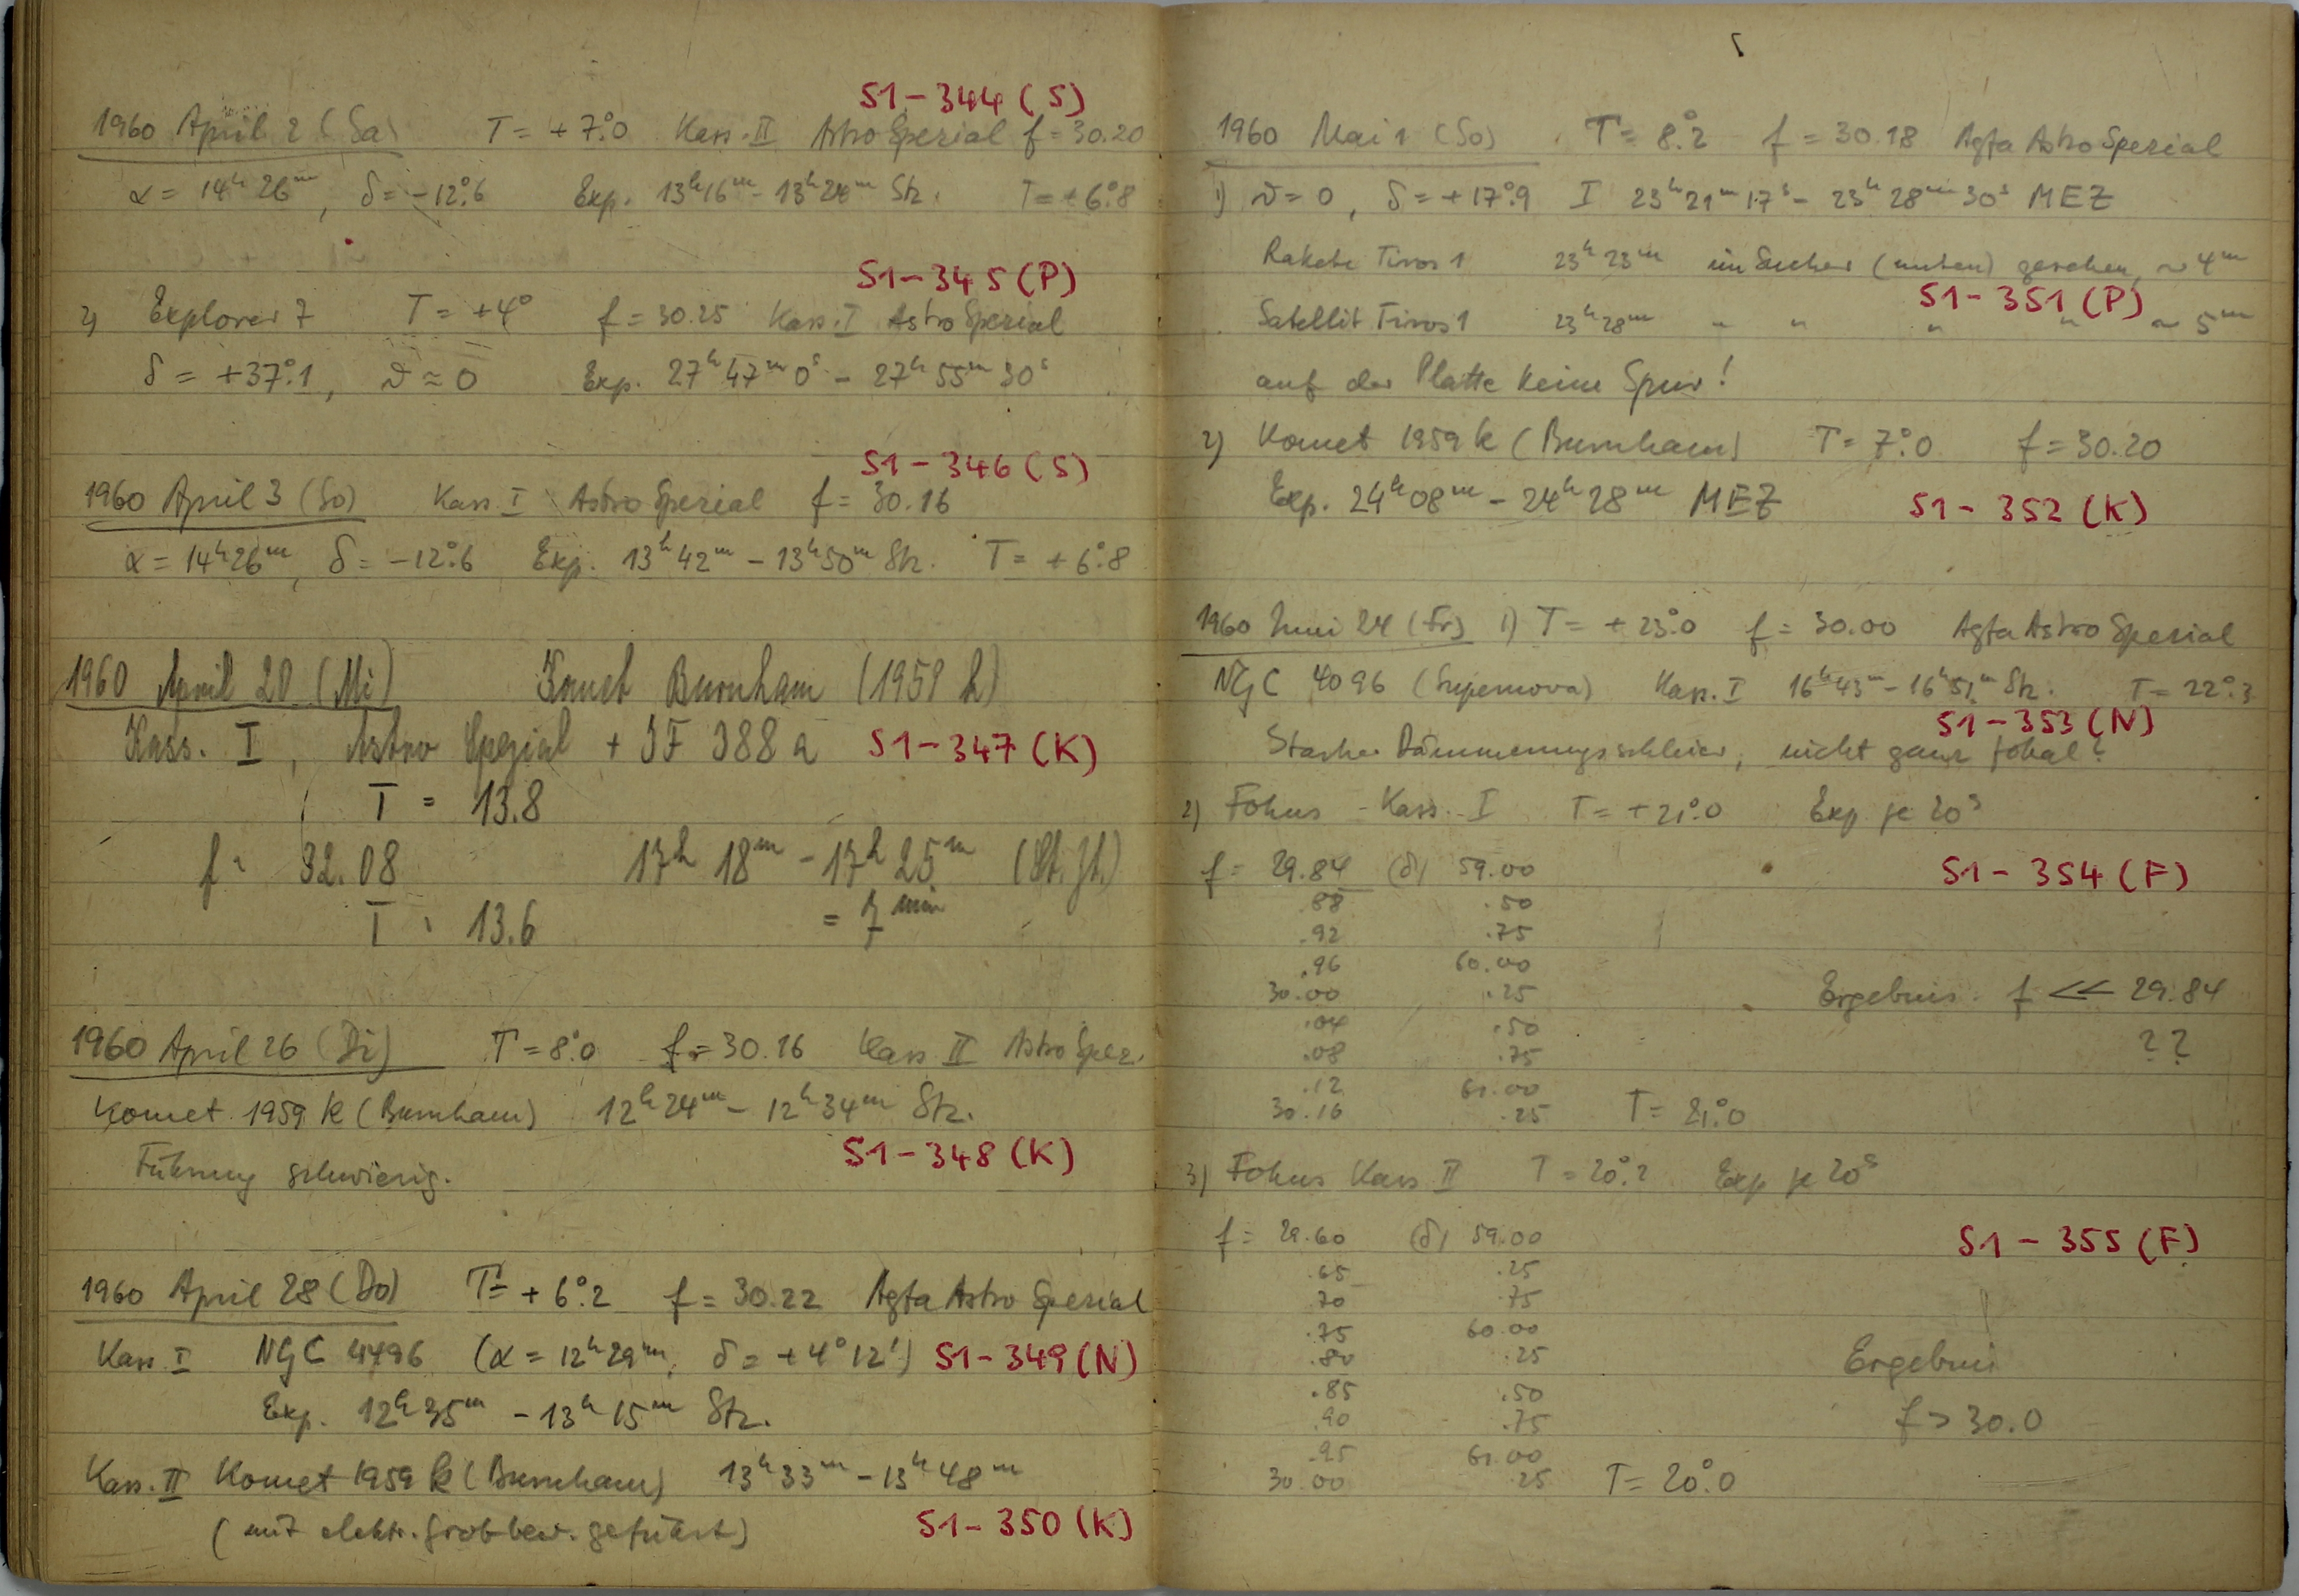 S1-344 (S)
1960 April 2 (Sa) T = +7°.0 Kass. II Astro Spezial f = 30.20
α = 14h 26m, δ = -12°.6 Exp. 13h16m - 13h24m Stz. T = +6°.8
S1-345 (P)
2) Explorer 7 T = +4° f = 30.25 Kass. I Astro Spezial
δ = +37°.1, ϑ ≈ 0 Exp. 27h 47m 0s - 27h 55m 30s
S1-346 (S)
1960 April 3 (So) Kass. I Astro Spezial f = 30.16
α = 14h26m, δ = -12°.6 Exp. 13h 42m - 13h50m Stz. T = +6°.8
1960 April 20 (Mi) Komet Burnham (1959 k)
Kass. I, Astro Spezial + JF 388 a S1-347 (K)
T = 13.8
f = 32.08 17h 18m - 17h 25m (St. Zt.)
T = 13.6 = 7 min
1960 April 26 (Di) T = 8°.0 f = 30.16 Kass II Astro Spez.
Komet 1959 k (Burnham) 12h 24m - 12h 34m Stz.
S1-348 (K)
Führung schwierig.
1960 April 28 (Do) T = +6°.2 f = 30.22 Agfa Astro Spezial
Kass. I NGC 4496 (α = 12h 29m, δ = +4° 12') S1-349 (N)
Exp. 12h 35m - 13h 15m Stz.
Kass. II Komet 1959 k (Burnham) 13h 33m - 13h 48m
(mit elektr. Grobbew. geführt) S1-350 (K)
5
1960 Mai 1 (So) T = 8°.2 f = 30.18 Agfa Astro Spezial
1) ϑ = 0, δ = +17°.9 I 23h 21m 17s - 23h 28m 30s MEZ
Rakete Tiros 1 23h 23m im Sucher (unten) gesehen, ~ 4m
S1-351 (P)
Satellit Tiros 1 23h 28m " " " " ~ 5m
auf der Platte keine Spur!
2) Komet 1959 k (Burnham) T = 7°.0 f = 30.20
Exp. 24h 08m - 24h 28m MEZ S1-352 (K)
1960 Juni 24 (Fr) 1) T = +23°.0 f = 30.00 Agfa Astro Spezial
NGC 4096 (Supernova) Kass. I 16h 43m - 16h 51m Stz. T = 22°.3
S1-353 (N)
Starker Dämmerungsschleier, nicht ganz fokal?
2) Fokus - Kass. I T = +21°.0 Exp je 20s
f = 29.84 (δ) 59.00 S1-354 (F)
.88 .50
.92 .75
.96 60.00
30.00 .25 Ergebnis: f << 29.84
.04 .50 ??
.08 .75
.12 61.00
30.16 .25 T = 21°.0
3) Fokus Kass II T = 20°.2 Exp je 20s
f = 29.60 (δ) 59.00 S1-355 (F)
.65 .25
.70 .75
.75 60.00
.80 .25 Ergebnis
.85 .50
.90 .75 f > 30.0
.95 61.00
30.00 .25 T = 20°.0